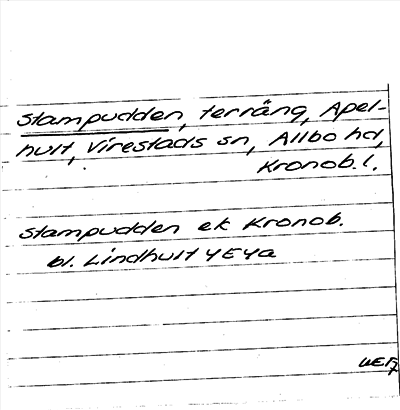 Stampudden, terräng, Apel-
hult, Virestads sn, Allbo hd,
Kronob. l.
Stampudden ek Kronob.
bl. Lindhult 4E4a